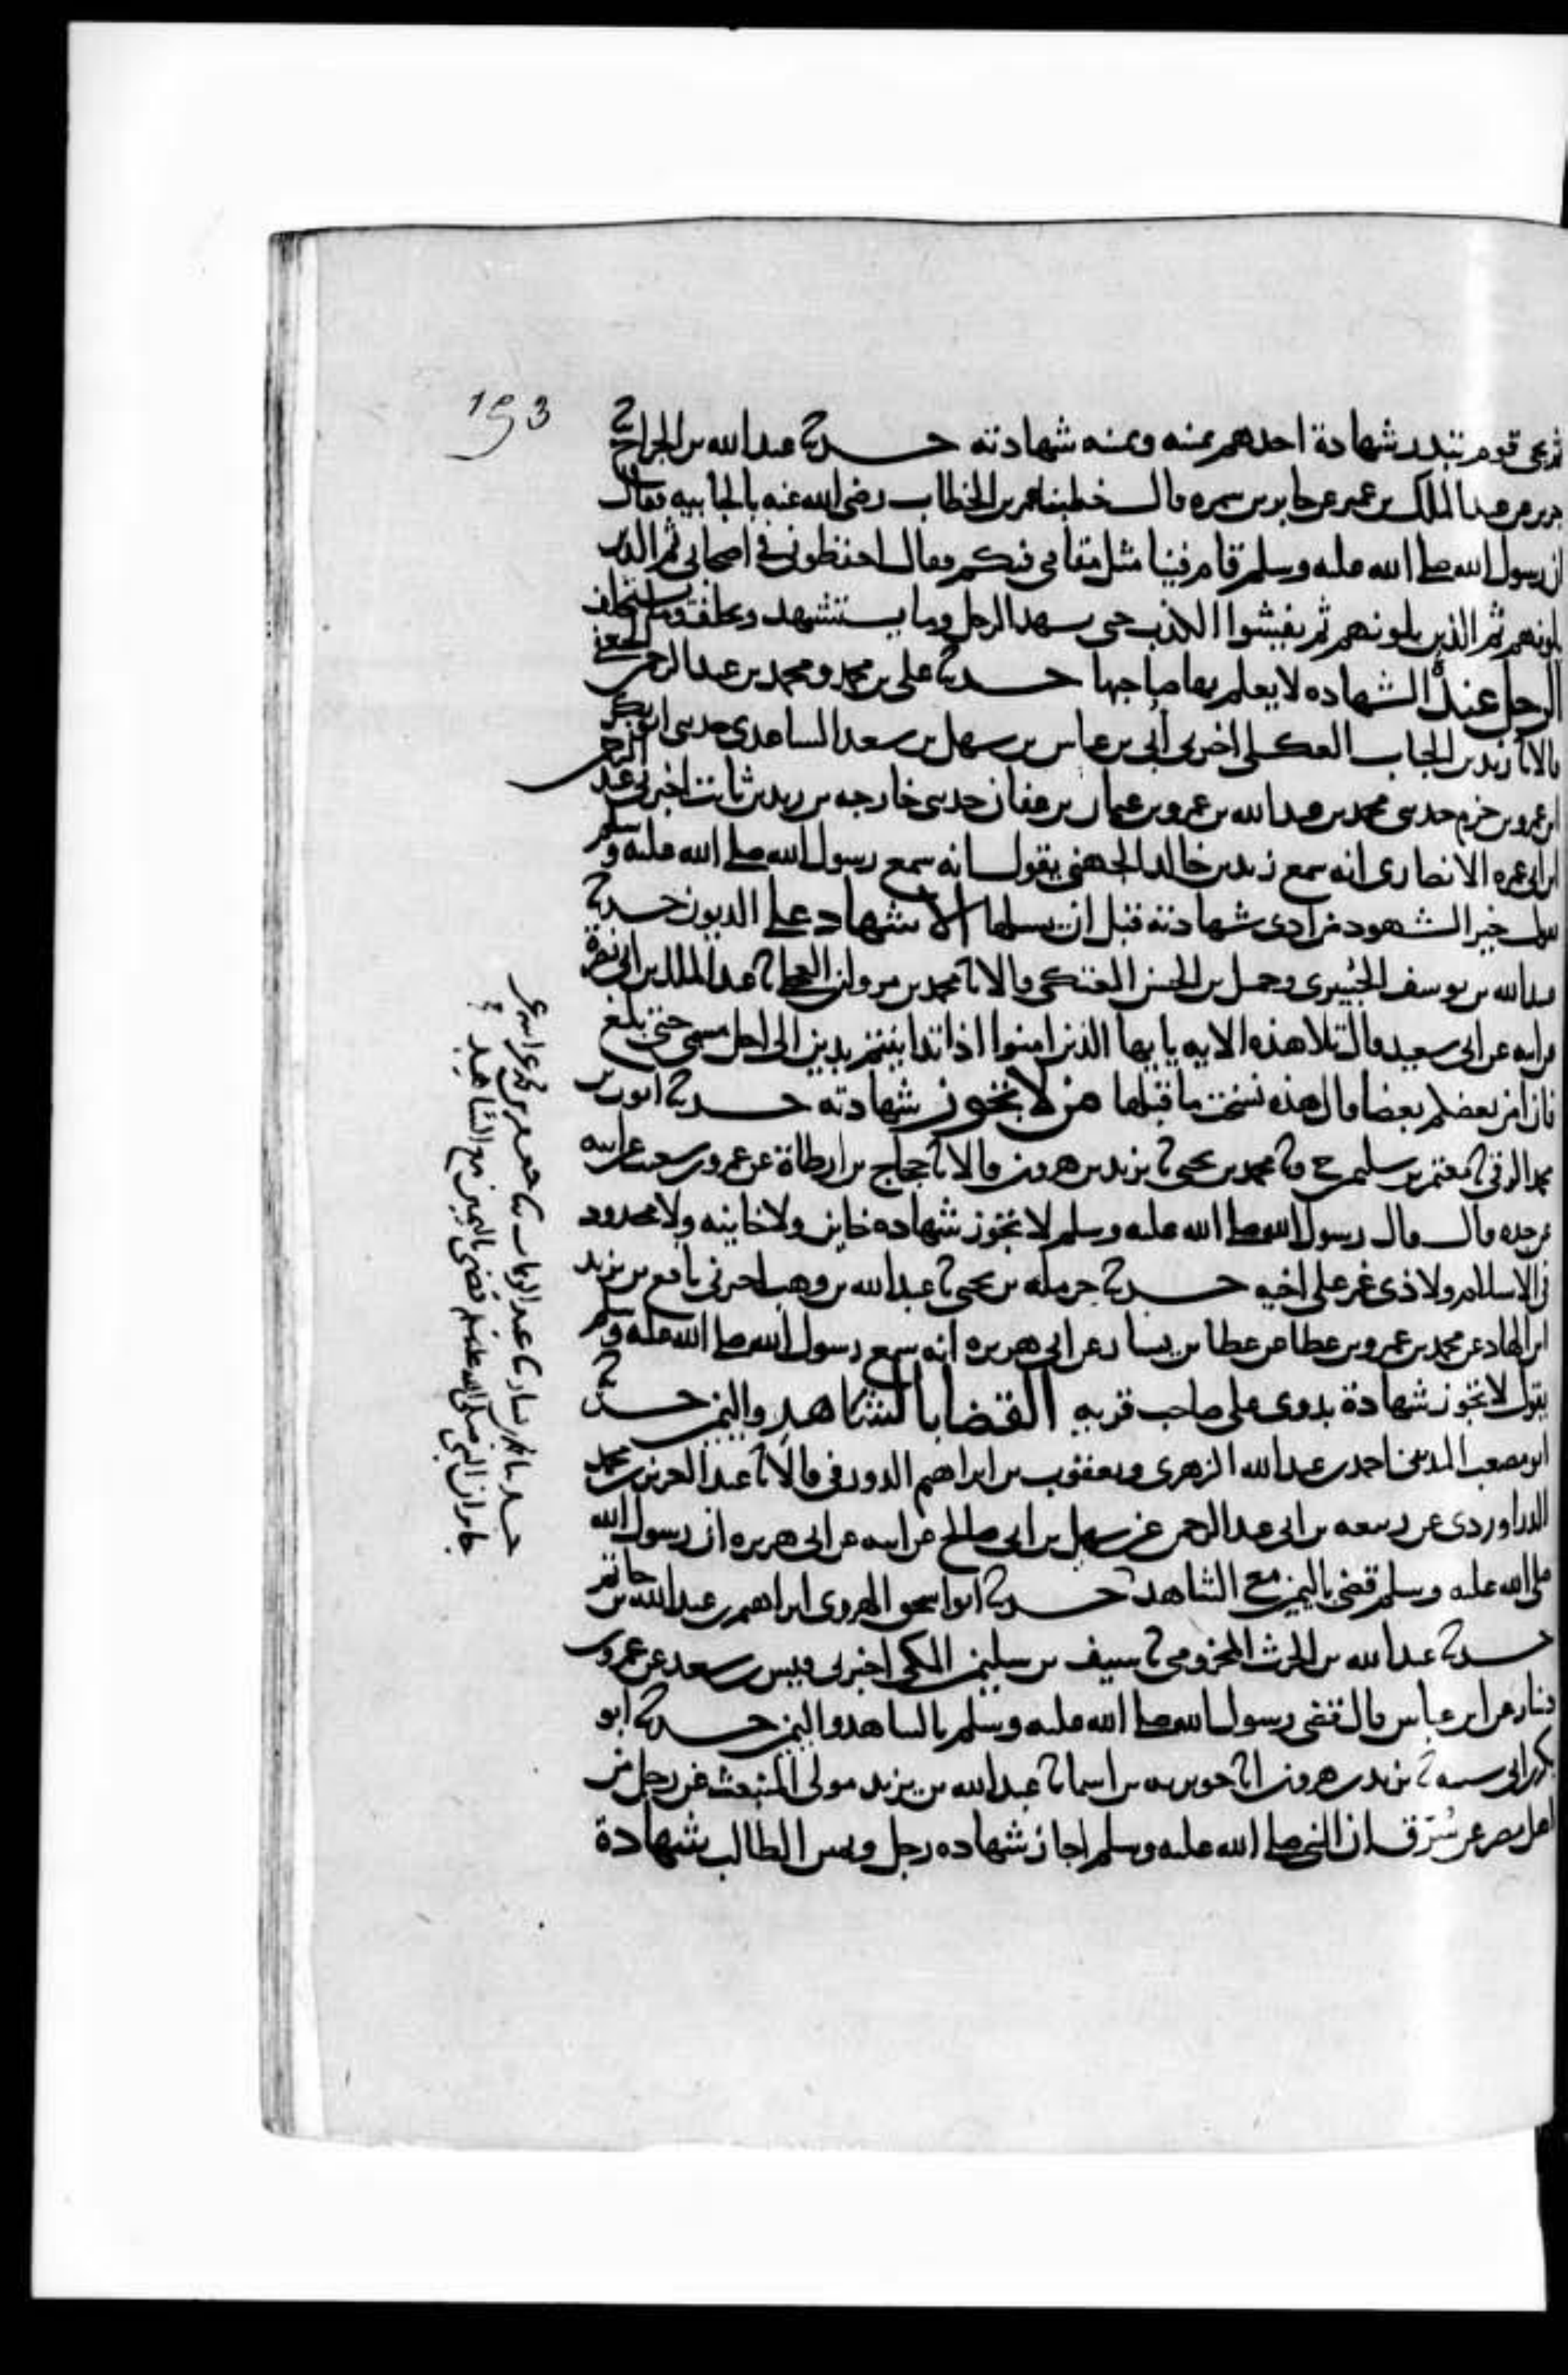 153
قوم تبدر شهادة احدهم يمينه ويمينه شهادته حدثنا عبدالله بن الجراح ثنا
جرير عن عبدالملك بن عمير عن جابر بن سمره قال خطبنا عمر بن الخطاب رضى الله عنه بالجابيه فقال
ان رسول الله صلى الله عليه وسلم قام فينا مثل مقامى فيكم فقال احفظونى فى اصحابى ثم الذين
يلونهم ثم الذين يلونهم ثم يفشوا الكذب حتى يشهد الرجل وما يستشهد ويحلف وما يستحلف
الرجل عنده الشهاده لا يعلم بها صاحبها حدثنا على بن محمد ومحمد بن عبدالرحمن الجعفى
قالا ثنا زيد بن الحباب العكلى اخبرنى ابى بن عباس بن سهل بن سعد الساعدى حدثنى ابو بكر
ابن عمرو بن حزم حدثنى محمد بن عبدالله بن عمرو بن عثمان بن عفان حدثنى خارجه بن زيد بن ثابت اخبرنى عبد الرحمن
ابن ابى عمره الانصارى انه سمع زيد بن خالد الجهنى يقول انه سمع رسول الله صلى الله عليه وسلم
يقول خير الشهود من ادى شهادته قبل ان يسلها الاشهاد على الديون حدثنا
عبدالله بن يوسف الجبيرى وجميل بن الحسن العتكى قالا ثنا محمد بن مروان العجلى ثنا عبدالملك بن ابى نضرة
عن ابيه عن ابى سعيد قال تلا هذه الايه يا يها الذين امنوا اذا تداينتم بدين الى اجل مسمى حتى بلغ
فان امن بعضكم بعضا قال هذه نسخت ما قبلها من لا تجوز شهادته حدثنا ايوب بن
محمد الرقى ثنا معتمر بن سليمن ح وثنا محمد بن يحيى ثنا يزيد بن هرون قالا ثنا حجاج بن ارطاة عن عمرو بن شعيب عن ابيه
عن جده قال قال رسول الله صلى الله عليه وسلم لا تجوز شهاده خاين ولا خاينه ولا محدود
فى الاسلام ولا ذى غمر على اخيه حدثنا حرمله بن يحيى ثنا عبدالله بن وهب اخبرنى نافع بن يزيد
ابن الهاد عن محمد بن عمرو بن عطا عن عطا بن يسار عن ابى هريره انه سمع رسول الله صلى الله عليه وسلم
يقول لا تجوز شهادة بدوى على صاحب قريه القضا بالشاهد واليمين حدثنا
ابو مصعب المدينى احمد بن عبدالله الزهرى ويعقوب بن ابراهيم الدورقى قالا ثنا عبدالعزيز بن محمد
الدراوردى عن ربيعه بن ابى عبدالرحمن عن سهيل بن ابى صالح عن ابيه عن ابى هريره ان رسول الله
صلى الله عليه وسلم قضى باليمين مع الشاهد حدثنا ابو اسحق الهروى ابراهيم بن عبدالله بن حاتم
حدثنا عبدالله بن الحرث المخزومى ثنا سيف بن سليمن المكى اخبرنى قيس بن سعد عن عمرو بن
دينار عن ابن عباس قال قضى رسول الله صلى الله عليه وسلم بالشاهد واليمين حدثنا ابو
بكر بن ابى شيبه ثنا يزيد بن هرون انا جويريه بن اسما ثنا عبدالله بن يزيد مولى المنبعث عن رجل من
اهل مصر عن سرق ان النبى صلى الله عليه وسلم اجاز شهاده رجل ويمين الطالب شهادة
حدثنا محمد بن بشار ثنا عبد الوهاب ثنا جعفر بن محمد عن ابيه عن
جابر ان النبى صلى الله عليه وسلم قضى باليمين مع الشاهد